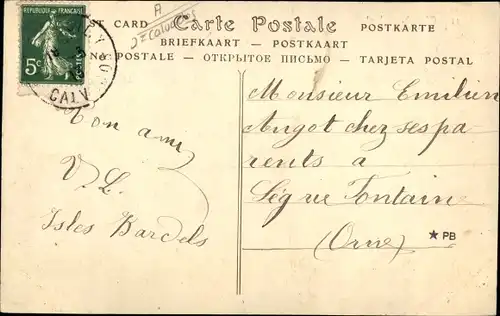 POST CARD Carte Postale POSTKARTE
BRIEFKAART - POSTKAART
POSTALE - ОТКРЫТОЕ ПИСЬМО - TARJETA POSTAL
REPUBLIQUE FRANÇAISE
5c
POSTES
CALV
A
Mon ami
V L.
Isles Bardels
Monsieur Emilien
Angot chez ses pa
rents a
Ségrie Fontaine
(Orne)
★ PB